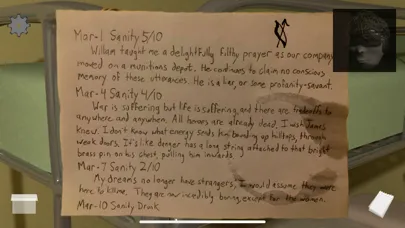 Mar-1 Sanity 5/10
William taught me a delightfully filthy prayer as our company
moved on a munitions depot. He continues to claim no conscious
memory of these utterances. He is a liar, or some profanity-savant.
Mar-4 Sanity 4/10
War is suffering but life is suffering, and there are
anywhere and anywhen. All honors are already dead, I wish James
knew. I don't know what energy sends him bounding up hilltops, through
weak doors. It's like danger has a long string attached to that bright
brass pin on his chest, pulling him inwards.
Mar-7 Sanity 2/10
My dreams no longer have strangers, I would assume they were
here to kill me. They are now incredibly boring, except for the women.
Mar-10 Sanity Drunk